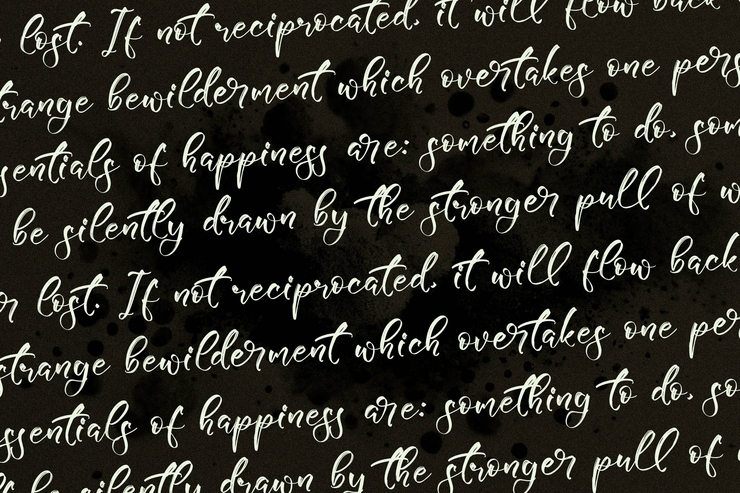 lost. If not reciprocated, it will flow back
trange bewilderment which overtakes one pers
sentials of happiness are: something to do, som
be silently drawn by the stronger pull of w
r lost. If not reciprocated, it will flow back
strange bewilderment which overtakes one per
ssentials of happiness are: something to do, so
be silently drawn by the stronger pull of